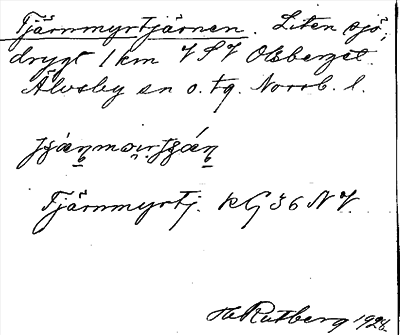 Tjärnmyrtjärnen. Liten sjö,
drygt 1 km V S V Olsberget.
Älvsby sn o. tg. Norrb. l.
Tjärnmyrtj. kG 36 N V.
H. Rutberg 1928.